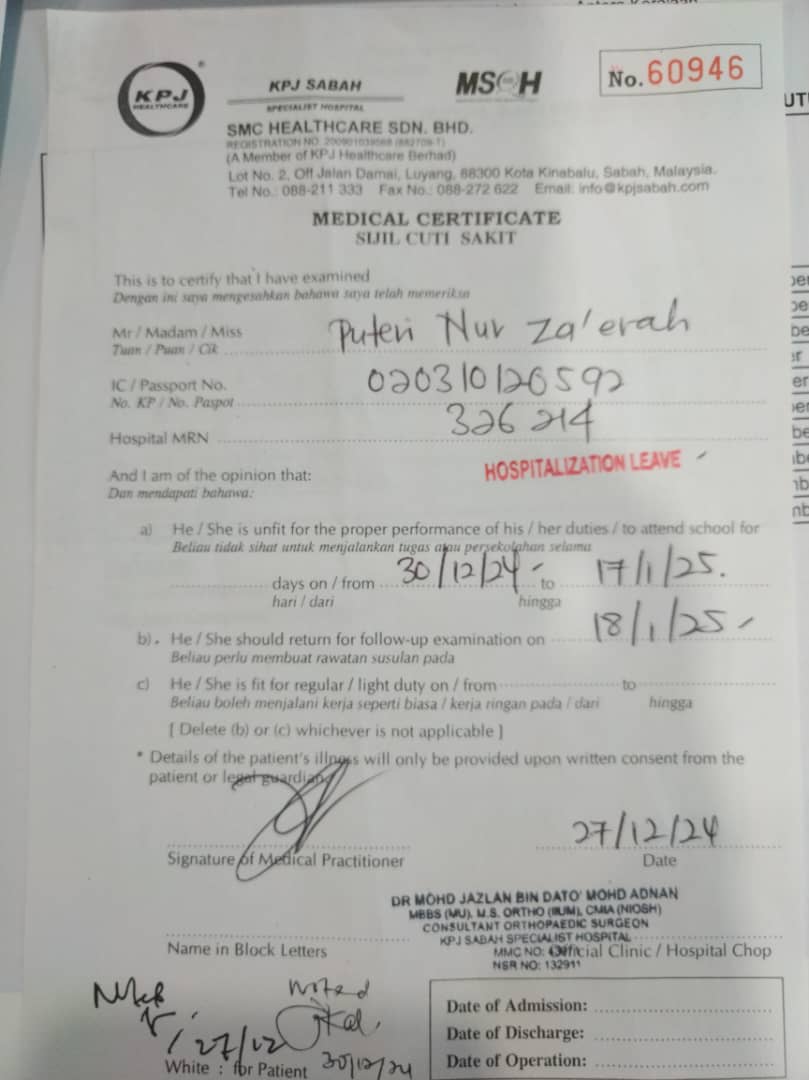 KPJ
HEALTHCARE
KPJ SABAH
SPECIALIST HOSPITAL
MSQH
No. 60946
SMC HEALTHCARE SDN. BHD.
REGISTRATION NO.
(A Member of KPJ Healthcare Berhad)
Lot No. 2, Off Jalan Damai, Luyang, 88300 Kota Kinabalu, Sabah, Malaysia.
Tel No.: 088-211 333 Fax No.: 088-272 622 Email: info@kpjsabah.com
MEDICAL CERTIFICATE
SIJIL CUTI SAKIT
This is to certify that I have examined
Dengan ini saya mengesahkan bahawa saya telah memeriksa
Mr / Madam / Miss Puteri Nur Za'erah
Tuan / Puan / Cik
IC / Passport No. 020310120592
No. KP / No. Paspot
Hospital MRN 326214
HOSPITALIZATION LEAVE
And I am of the opinion that:
Dan mendapati bahawa:
a) He / She is unfit for the proper performance of his / her duties / to attend school for
Beliau tidak sihat untuk menjalankan tugas atau persekolahan selama
days on / from 30/12/24 to 17/1/25.
hari / dari hingga
b). He / She should return for follow-up examination on 18/1/25
Beliau perlu membuat rawatan susulan pada
c) He / She is fit for regular / light duty on / from to
Beliau boleh menjalani kerja seperti biasa / kerja ringan pada / dari hingga
[ Delete (b) or (c) whichever is not applicable ]
* Details of the patient's illness will only be provided upon written consent from the
patient or legal guardian
27/12/24
Signature of Medical Practitioner Date
DR MOHD JAZLAN BIN DATO' MOHD ADNAN
MBBS (MU), M.S. ORTHO (IIUM), CMIA (NIOSH)
CONSULTANT ORTHOPAEDIC SURGEON
KPJ SABAH SPECIALIST HOSPITAL
Name in Block Letters MMC NO: Official Clinic / Hospital Chop
NSR NO: 132911
Noted
27/12
30/12/24
White : for Patient
Date of Admission:
Date of Discharge:
Date of Operation: